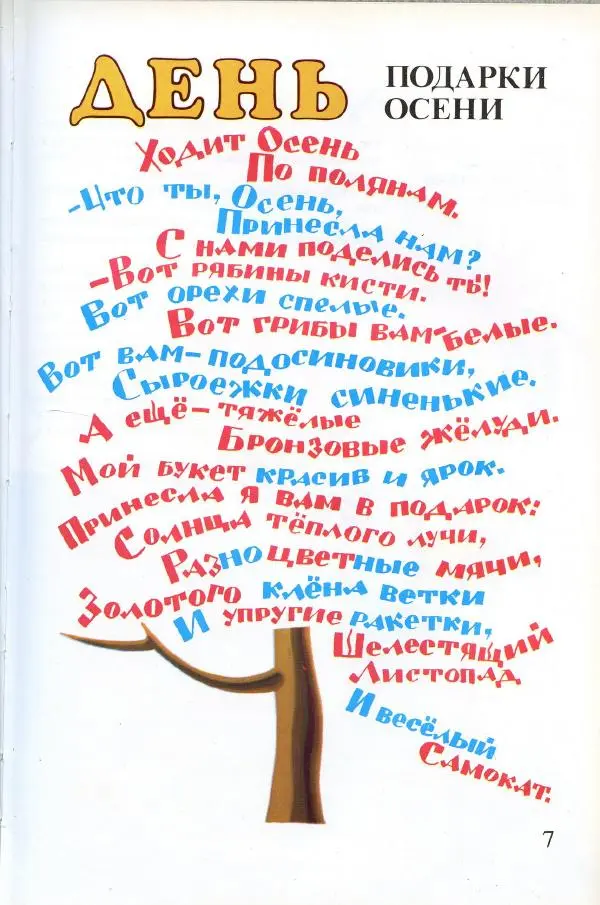 ДЕНЬ
ПОДАРКИ
ОСЕНИ
Ходит Осень
По полянам.
-Что ты, Осень,
Принесла нам?
С нами поделись ты!
-Вот рябины кисти.
Вот орехи спелые.
Вот грибы вам-белые.
Вот вам-подосиновики,
Сыроежки синенькие.
А ещё-тяжёлые
Бронзовые жёлуди.
Мой букет красив и ярок.
Принесла я вам в подарок:
Солнца тёплого лучи,
Разноцветные мячи,
Золотого клёна ветки
И упругие ракетки,
Шелестящий
Листопад
И весёлый
Самокат.
7